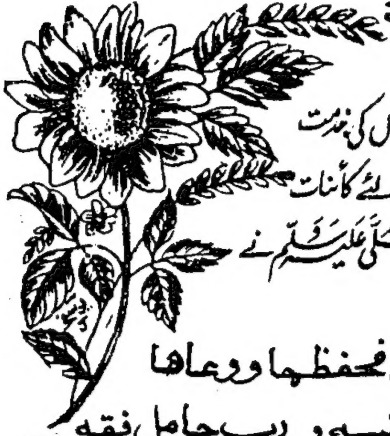 کی خدمت
لئے کائنات
صلی علیہ وسلم نے
فحفظها ووعاها
ورب حامل فقه